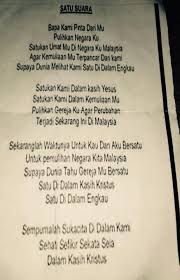 SATU SUARA
Bapa Kami Pinta Dari Mu
Pulihkan Negara Ku
Satukan Umat Mu Di Negara Ku Malaysia
Agar Kemuliaan Mu Terpancar Dari kami
Supaya Dunia Melihat Kami Satu Di Dalam Engkau
Satukan Kami Dalam kasih Yesus
Satukan Kami Dalam Kemuliaan Mu
Pulihkan Gereja Ku Agar Perubahan
Terjadi Sekarang Ini Di Malaysia
Sekaranglah Waktunya Untuk Kau Dan Aku Bersatu
Untuk pemulihan Negara Kita Malaysia
Supaya Dunia Tahu Gereja Mu Bersatu
Satu Di Dalam Kasih Kristus
Satu Di Dalam Engkau
Sempurnalah Sukacita Di Dalam Kami
Sehati Sefikir Sekata Seia
Dalam Kasih Kristus